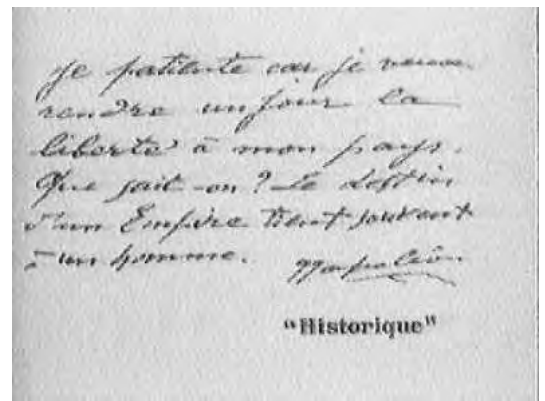 Je patiente car je veux
rendre un jour la
liberté à mon pays.
Que sait-on? Le destin
d'un Empire tient souvent
à un homme.
Napoléon
"Historique"